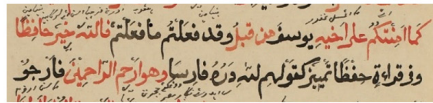 كما امِنْتُكُم على اخيه يوسف من قبلُ وقد فعلتم ما فعلتم فالله خيرٌ حافِظًا
وفى قراءة حِفْظًا تمييز كقولهم لله دَرُّهُ فارسا وهو ارحم الراحمين فارجو